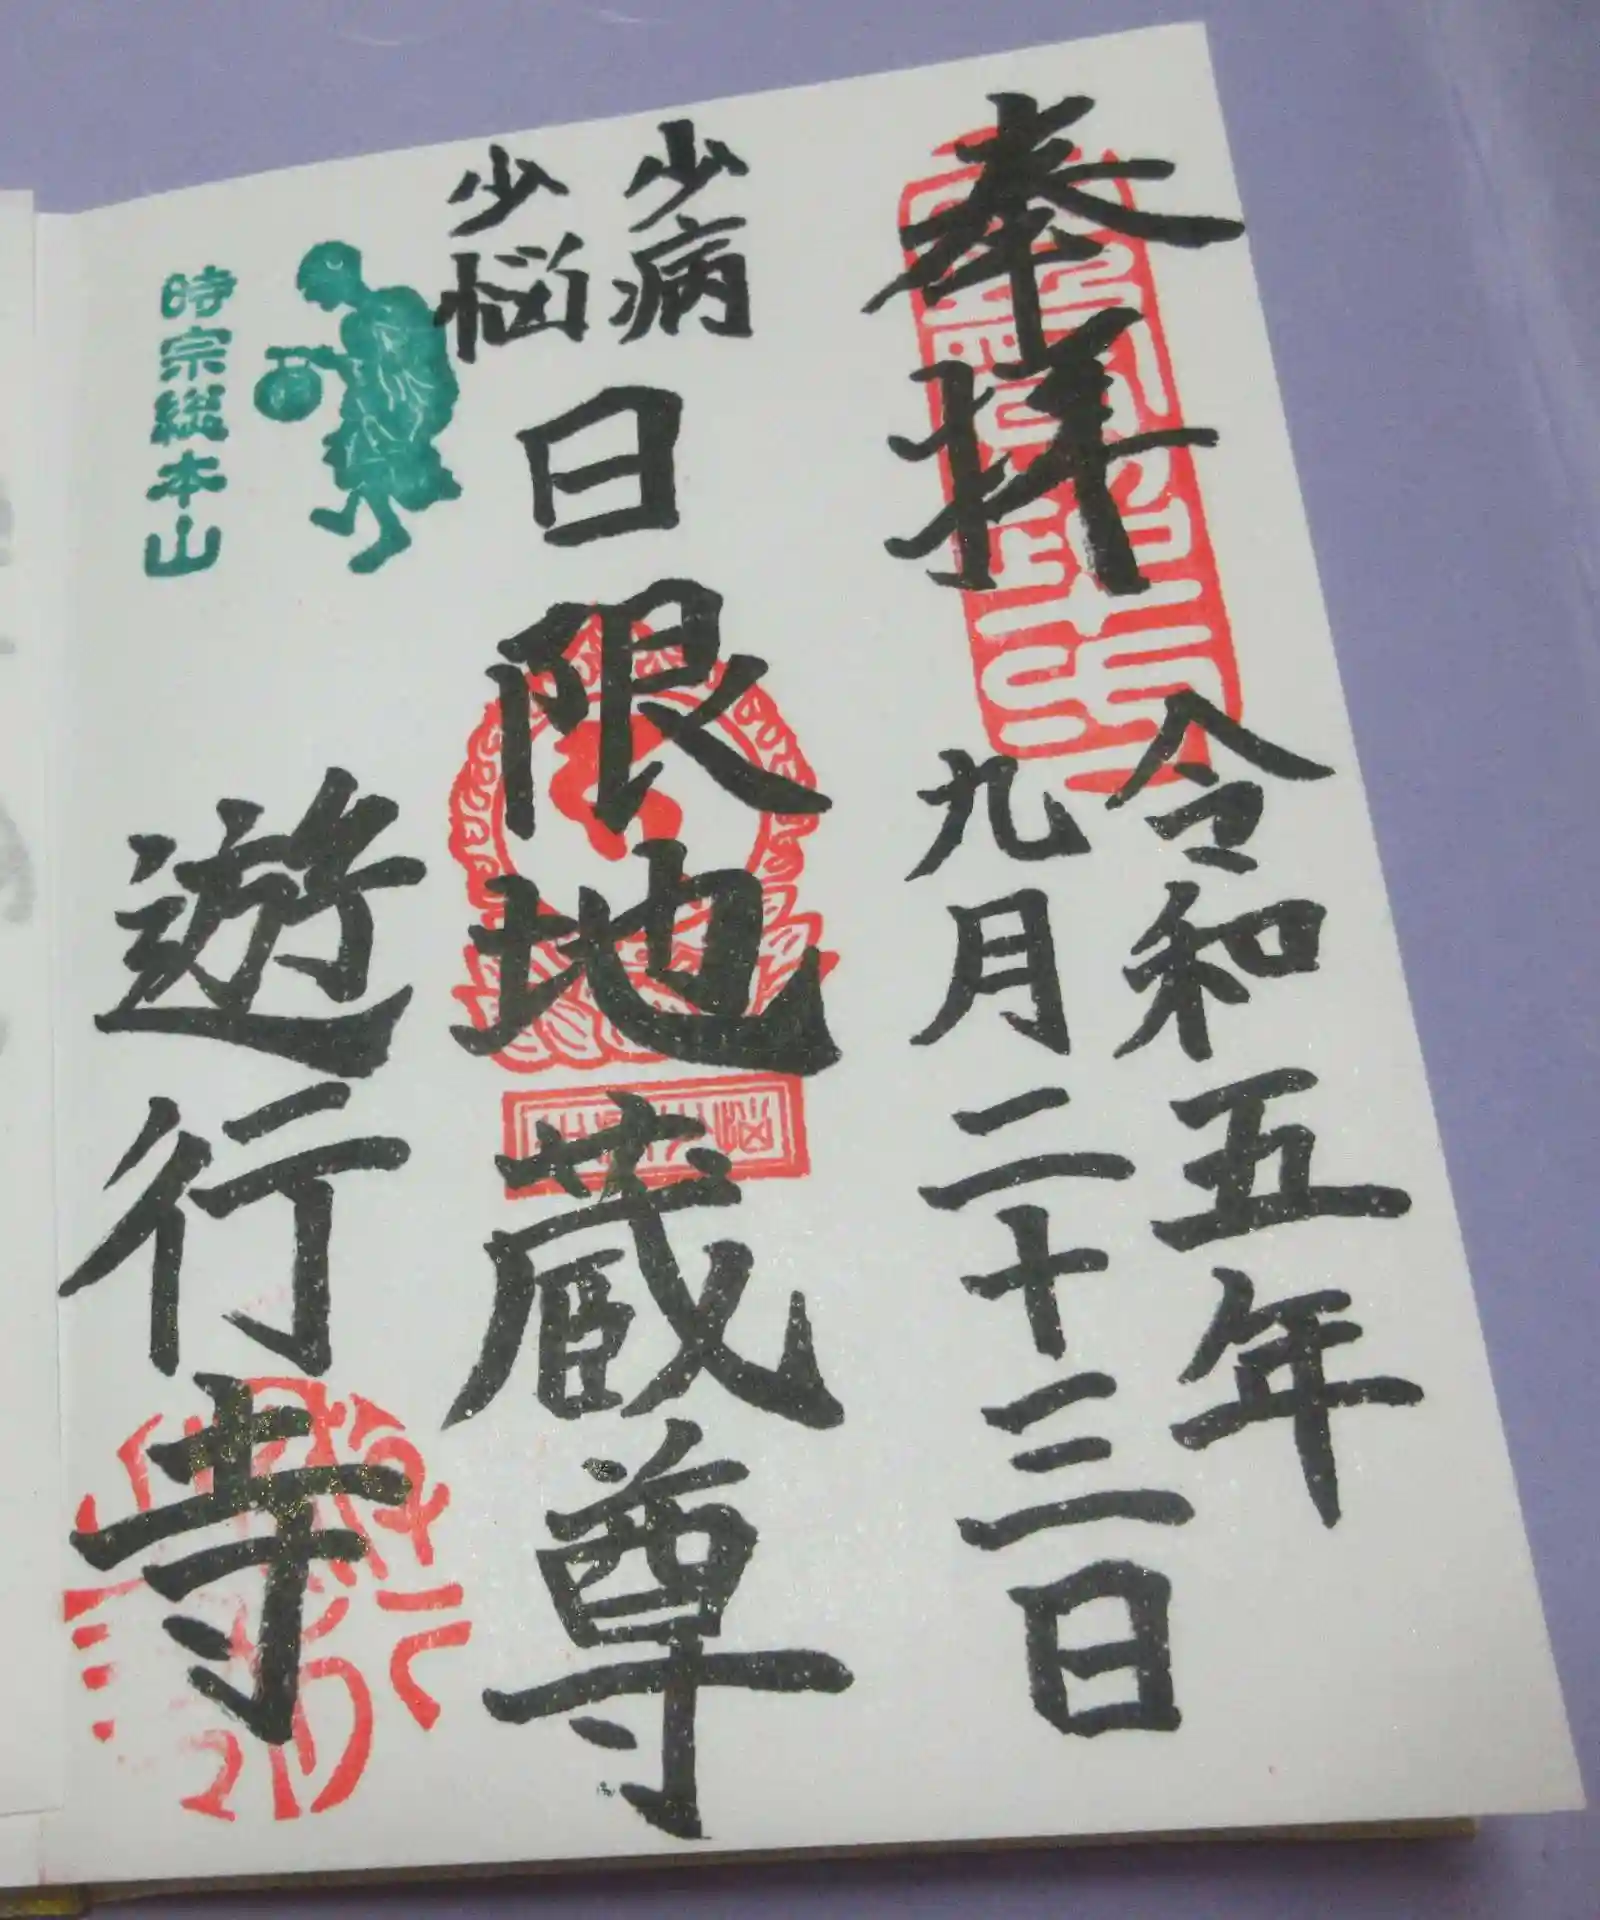 奉拝
令和五年
九月二十三日
少病
少悩
日限地蔵尊
時宗総本山
遊行寺